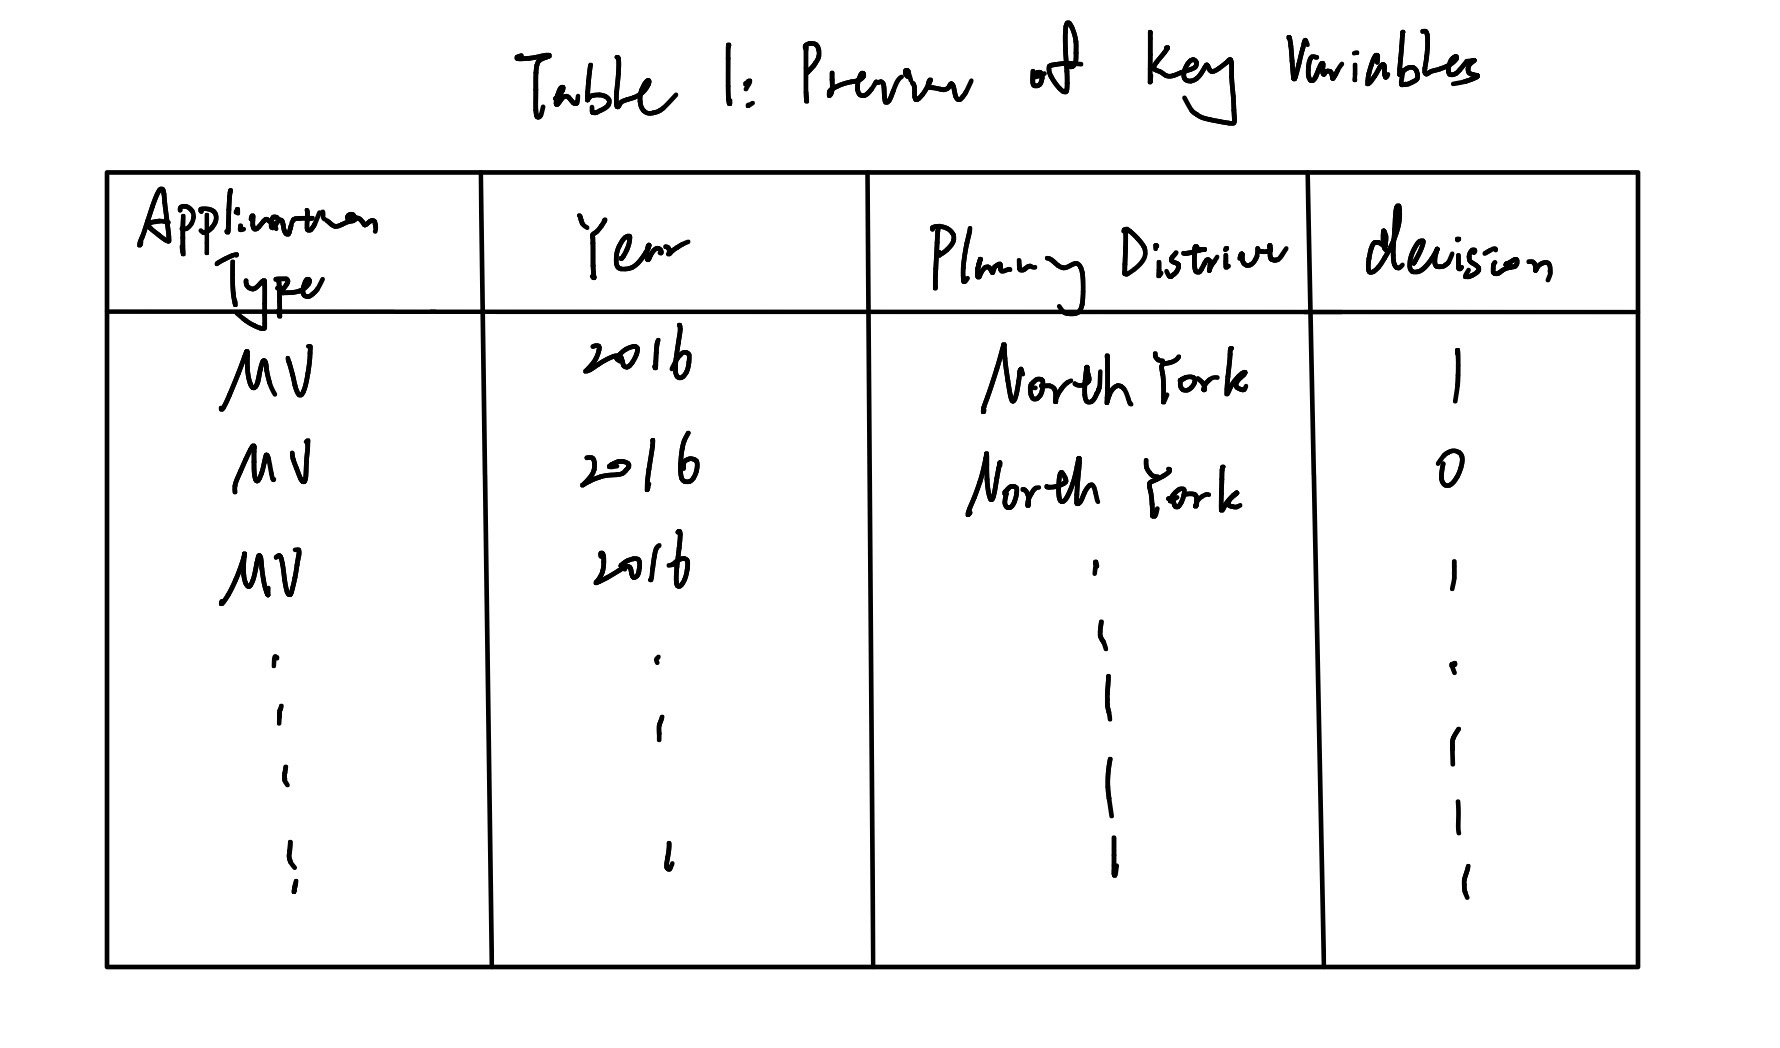 Table 1: Preview of Key Variables
Application Type Year Planning District decision
MV 2016 North York 1
MV 2016 North York 0
MV 2016 . 1